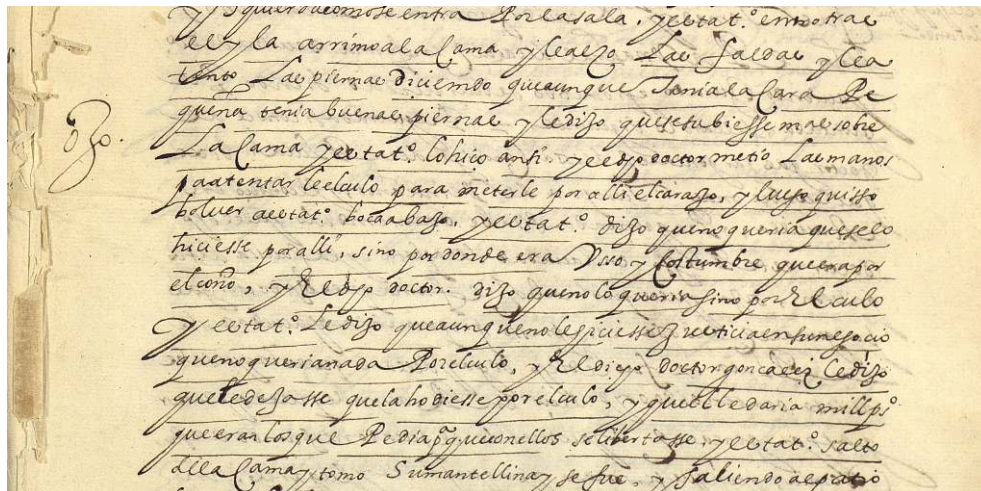 yzquierda como se entra Por la sala, y esta t.º entro tras
el y la arrimo a la Cama y le alzo Las faldas y le a
tento Las piernas diciendo que aunque Tenia la Cara Pe
queña tenia buenas piernas y le dijo que se subiesse mas sobre
La Cama y esta t.º lo hiço ansi. y el dho doctor metio Las manos
para atentarle el culo para meterle por alli el carajo, y luego quisso
bolver a esta t.º boca abajo, y esta t.º dijo que no queria que se lo
dijo.
hiciesse por alli, sino por donde era Vsso y costumbre, que era por
el coño, y El dho doctor. dijo que no lo queria sino por El culo
y esta t.º Le dijo que aunque no le hiciesse justicia en su negocio
que no queria nada Por el culo, y El dicho doctor gonçalez le dijo
que le dejasse que la hodiesse por el culo, y que el le daria mill p.s
que eran los que Pedia p.a que con ellos se libertasse, y esta t.º salto
de la Cama y tomo Su mantellina y se fue, y saliendo al patio